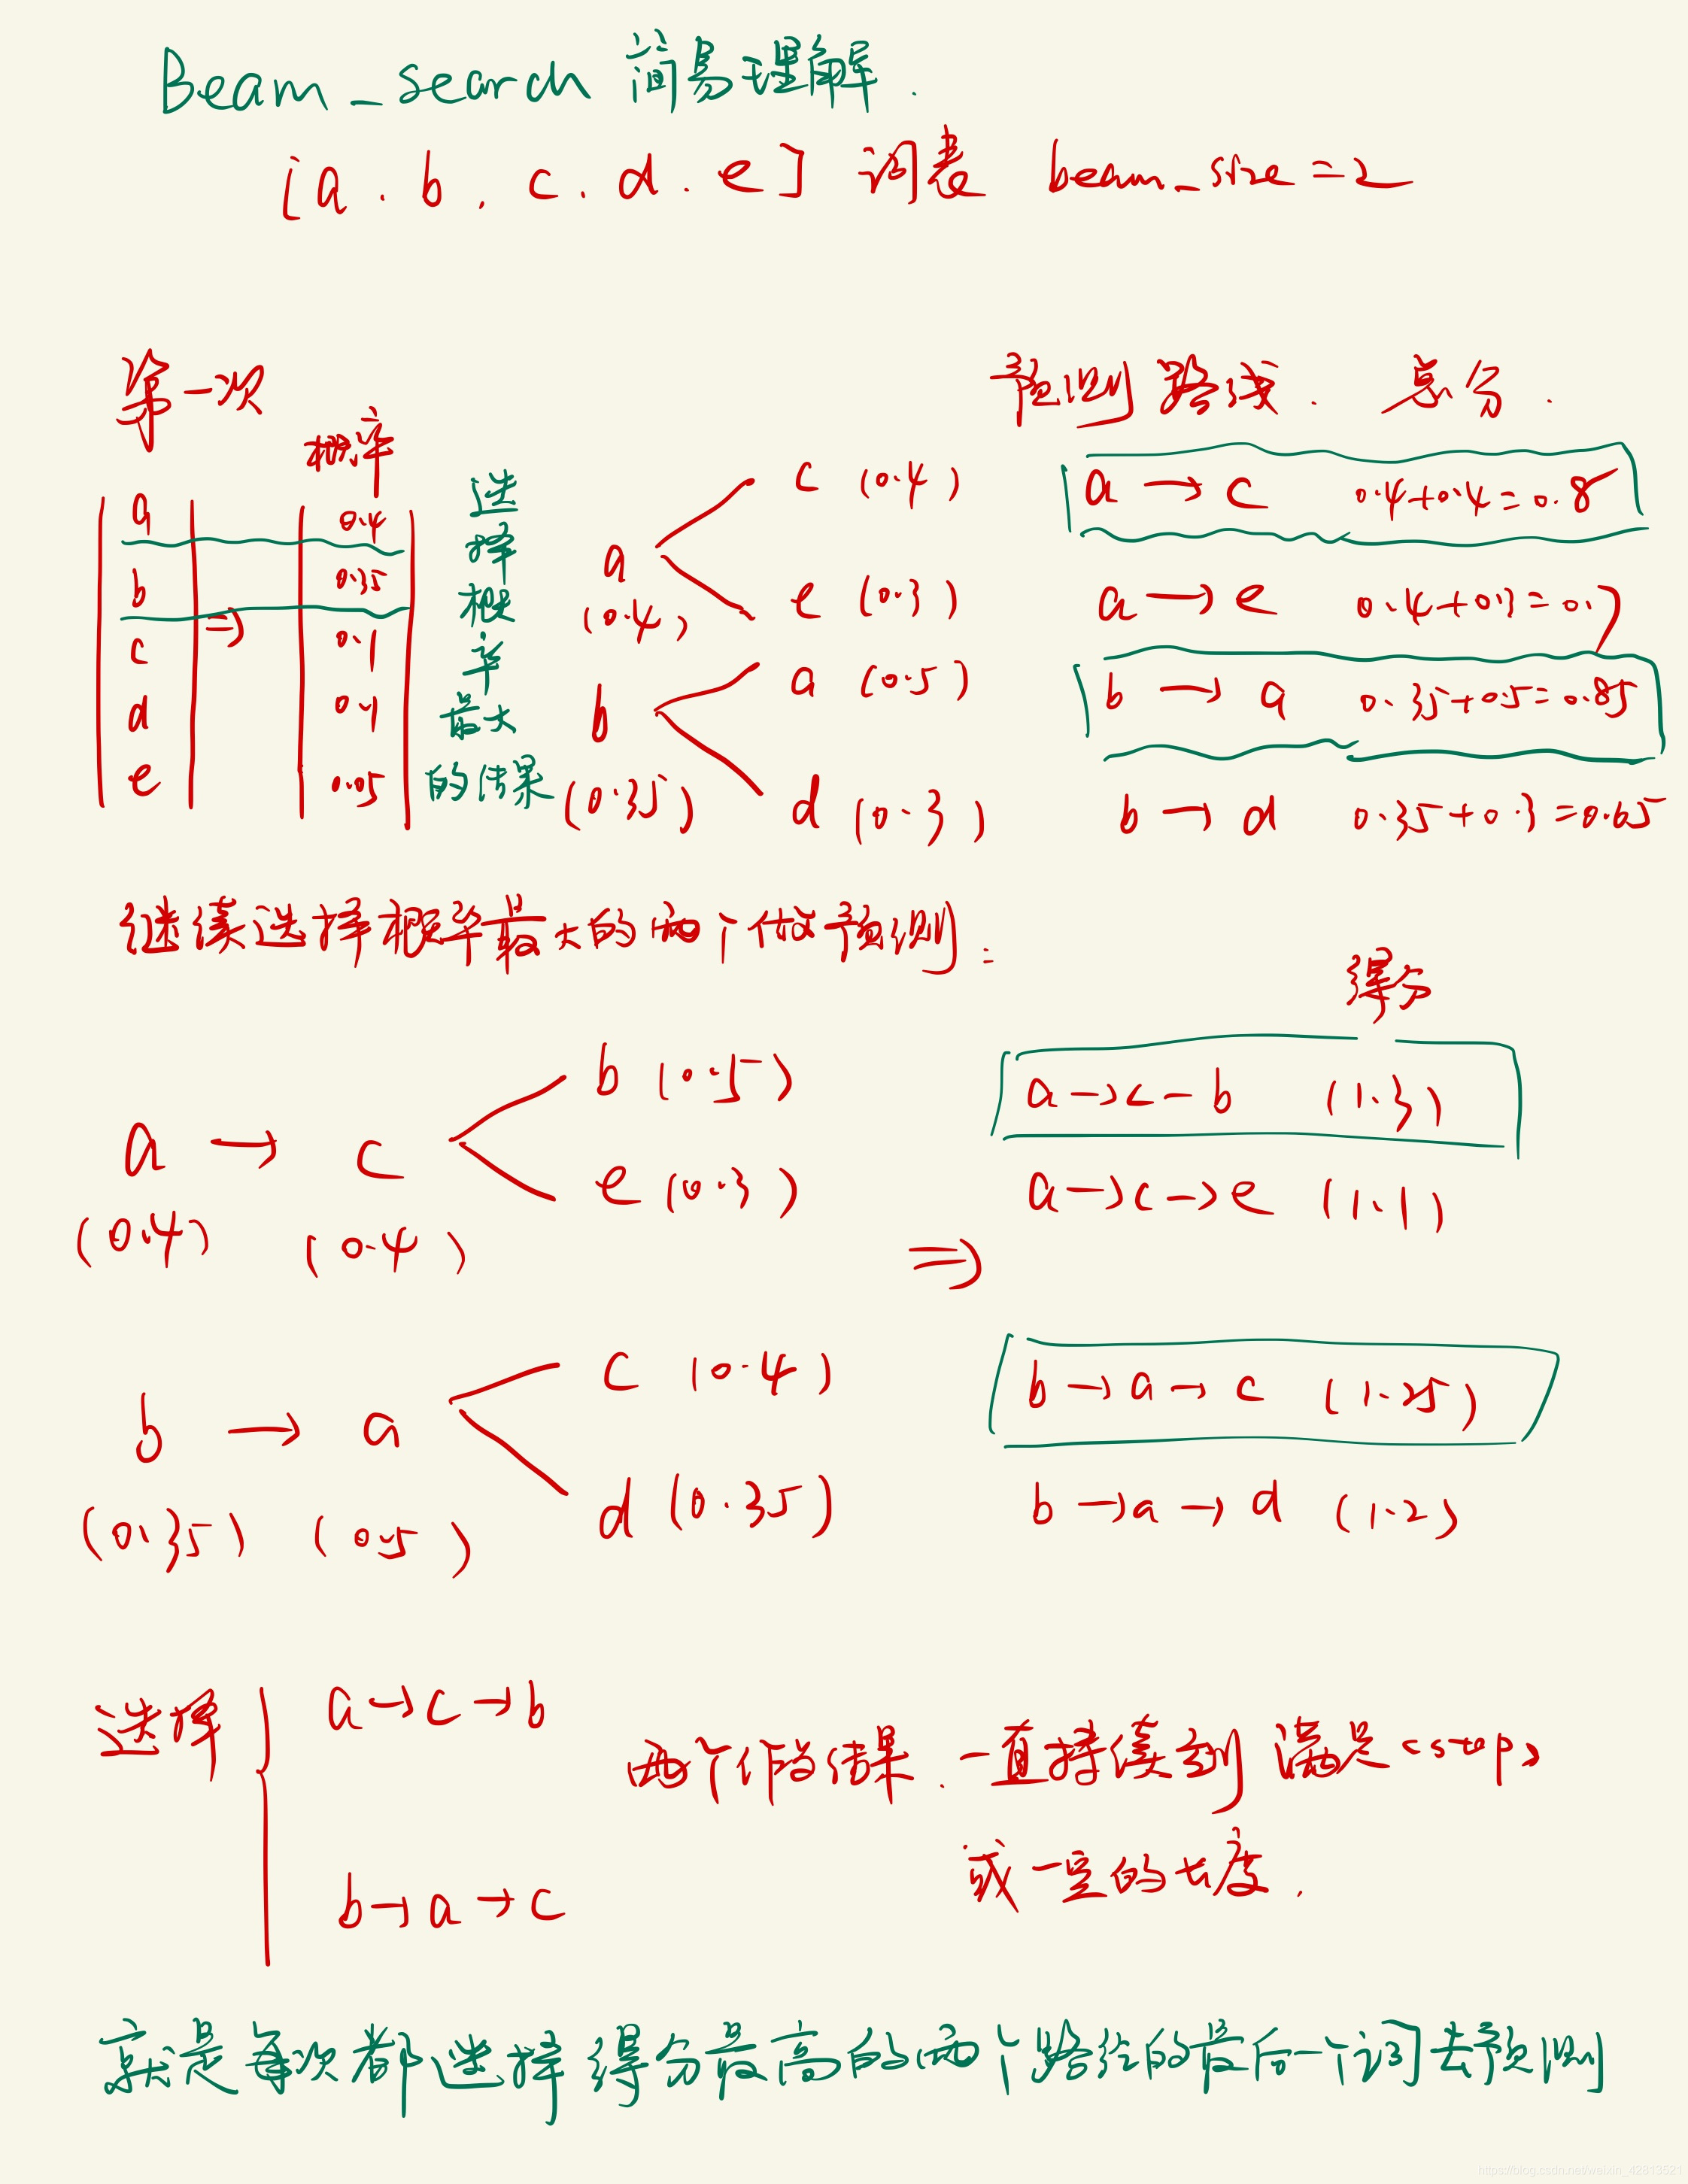 Beam_search 简易理解.
[a.b.c.d.e] 词表 beam_size=2
第一次
预测路线. 总分.
概率
a 0.4
b 0.35
c ⇒ 0.1
d 0.1
e 0.05
选择概率最大的结果
a (0.4)
c (0.4)
e (0.3)
b (0.35)
a (0.5)
d (0.3)
a → c 0.4+0.4=0.8
a → e 0.4+0.3=0.7
b → a 0.35+0.5=0.85
b → d 0.35+0.3=0.65
继续选择概率最大的两个做预测:
得分
a → c
(0.4) (0.4)
b (0.5)
e (0.3)
⇒
a→c-b (1.3)
a→c→e (1.1)
b → a
(0.35) (0.5)
c (0.4)
d (0.35)
b→a→c (1.25)
b→a→d (1.2)
选择
a→c→b
b→a→c
两个作为结果.一直持续到满足<stop>
或一定的长度.
就是每次都选择得分最高的两个路径的最后一个词去预测
https://blog.csdn.net/weixin_42813521